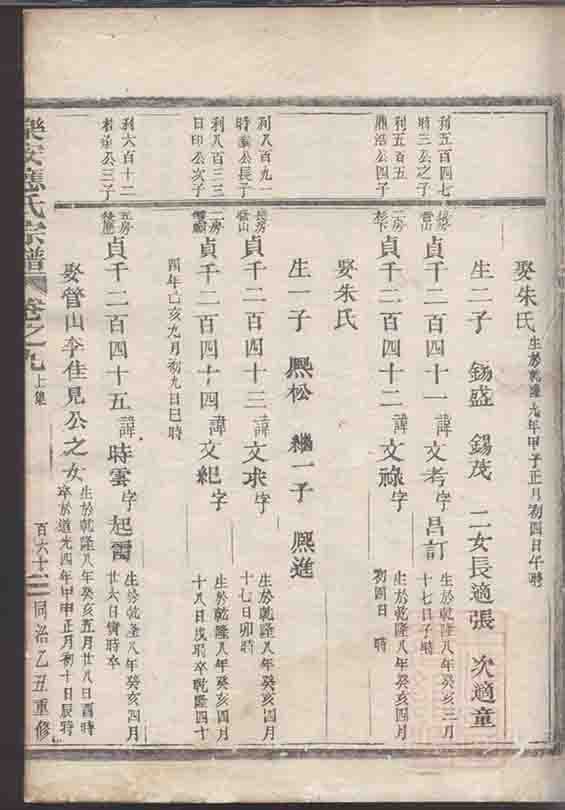 娶朱氏 生於乾隆九年甲子正月初四日午時
生二子 錫盛 錫茂 二女長適張 次適童
利五百四七
時三公之子
長房
管山
貞千二百四十一 諱文考字昌訂 生於乾隆八年癸亥三月
十七日子時
利五百五
鼎浩公四子
二房
貞千二百四十二 諱文祿字 生於乾隆八年癸亥四月
初四日 時
娶朱氏
生一子 熈松 繼一子 熈進
利八百九一
時公長子
長房
管山
貞千二百四十三 諱文求字 生於乾隆八年癸亥四月
十七日卯時
利八百三三
日印公次子
二房
貞千二百四十四 諱文紀字 生於乾隆八年癸亥四月
十八日戌時卒乾隆四十
四年乙亥九月初九日巳時
利六百十二
公三子
五房
貞千二百四十五 諱時雲字起雷 生於乾隆八年癸亥四月
廿六日寅時卒
娶管山李佳見公之女 生於乾隆八年癸亥五月廿八日酉時
卒於道光四年甲申正月初十日辰時
樂安應氏宗譜 卷之九 上集 百六十二 同治乙丑重修